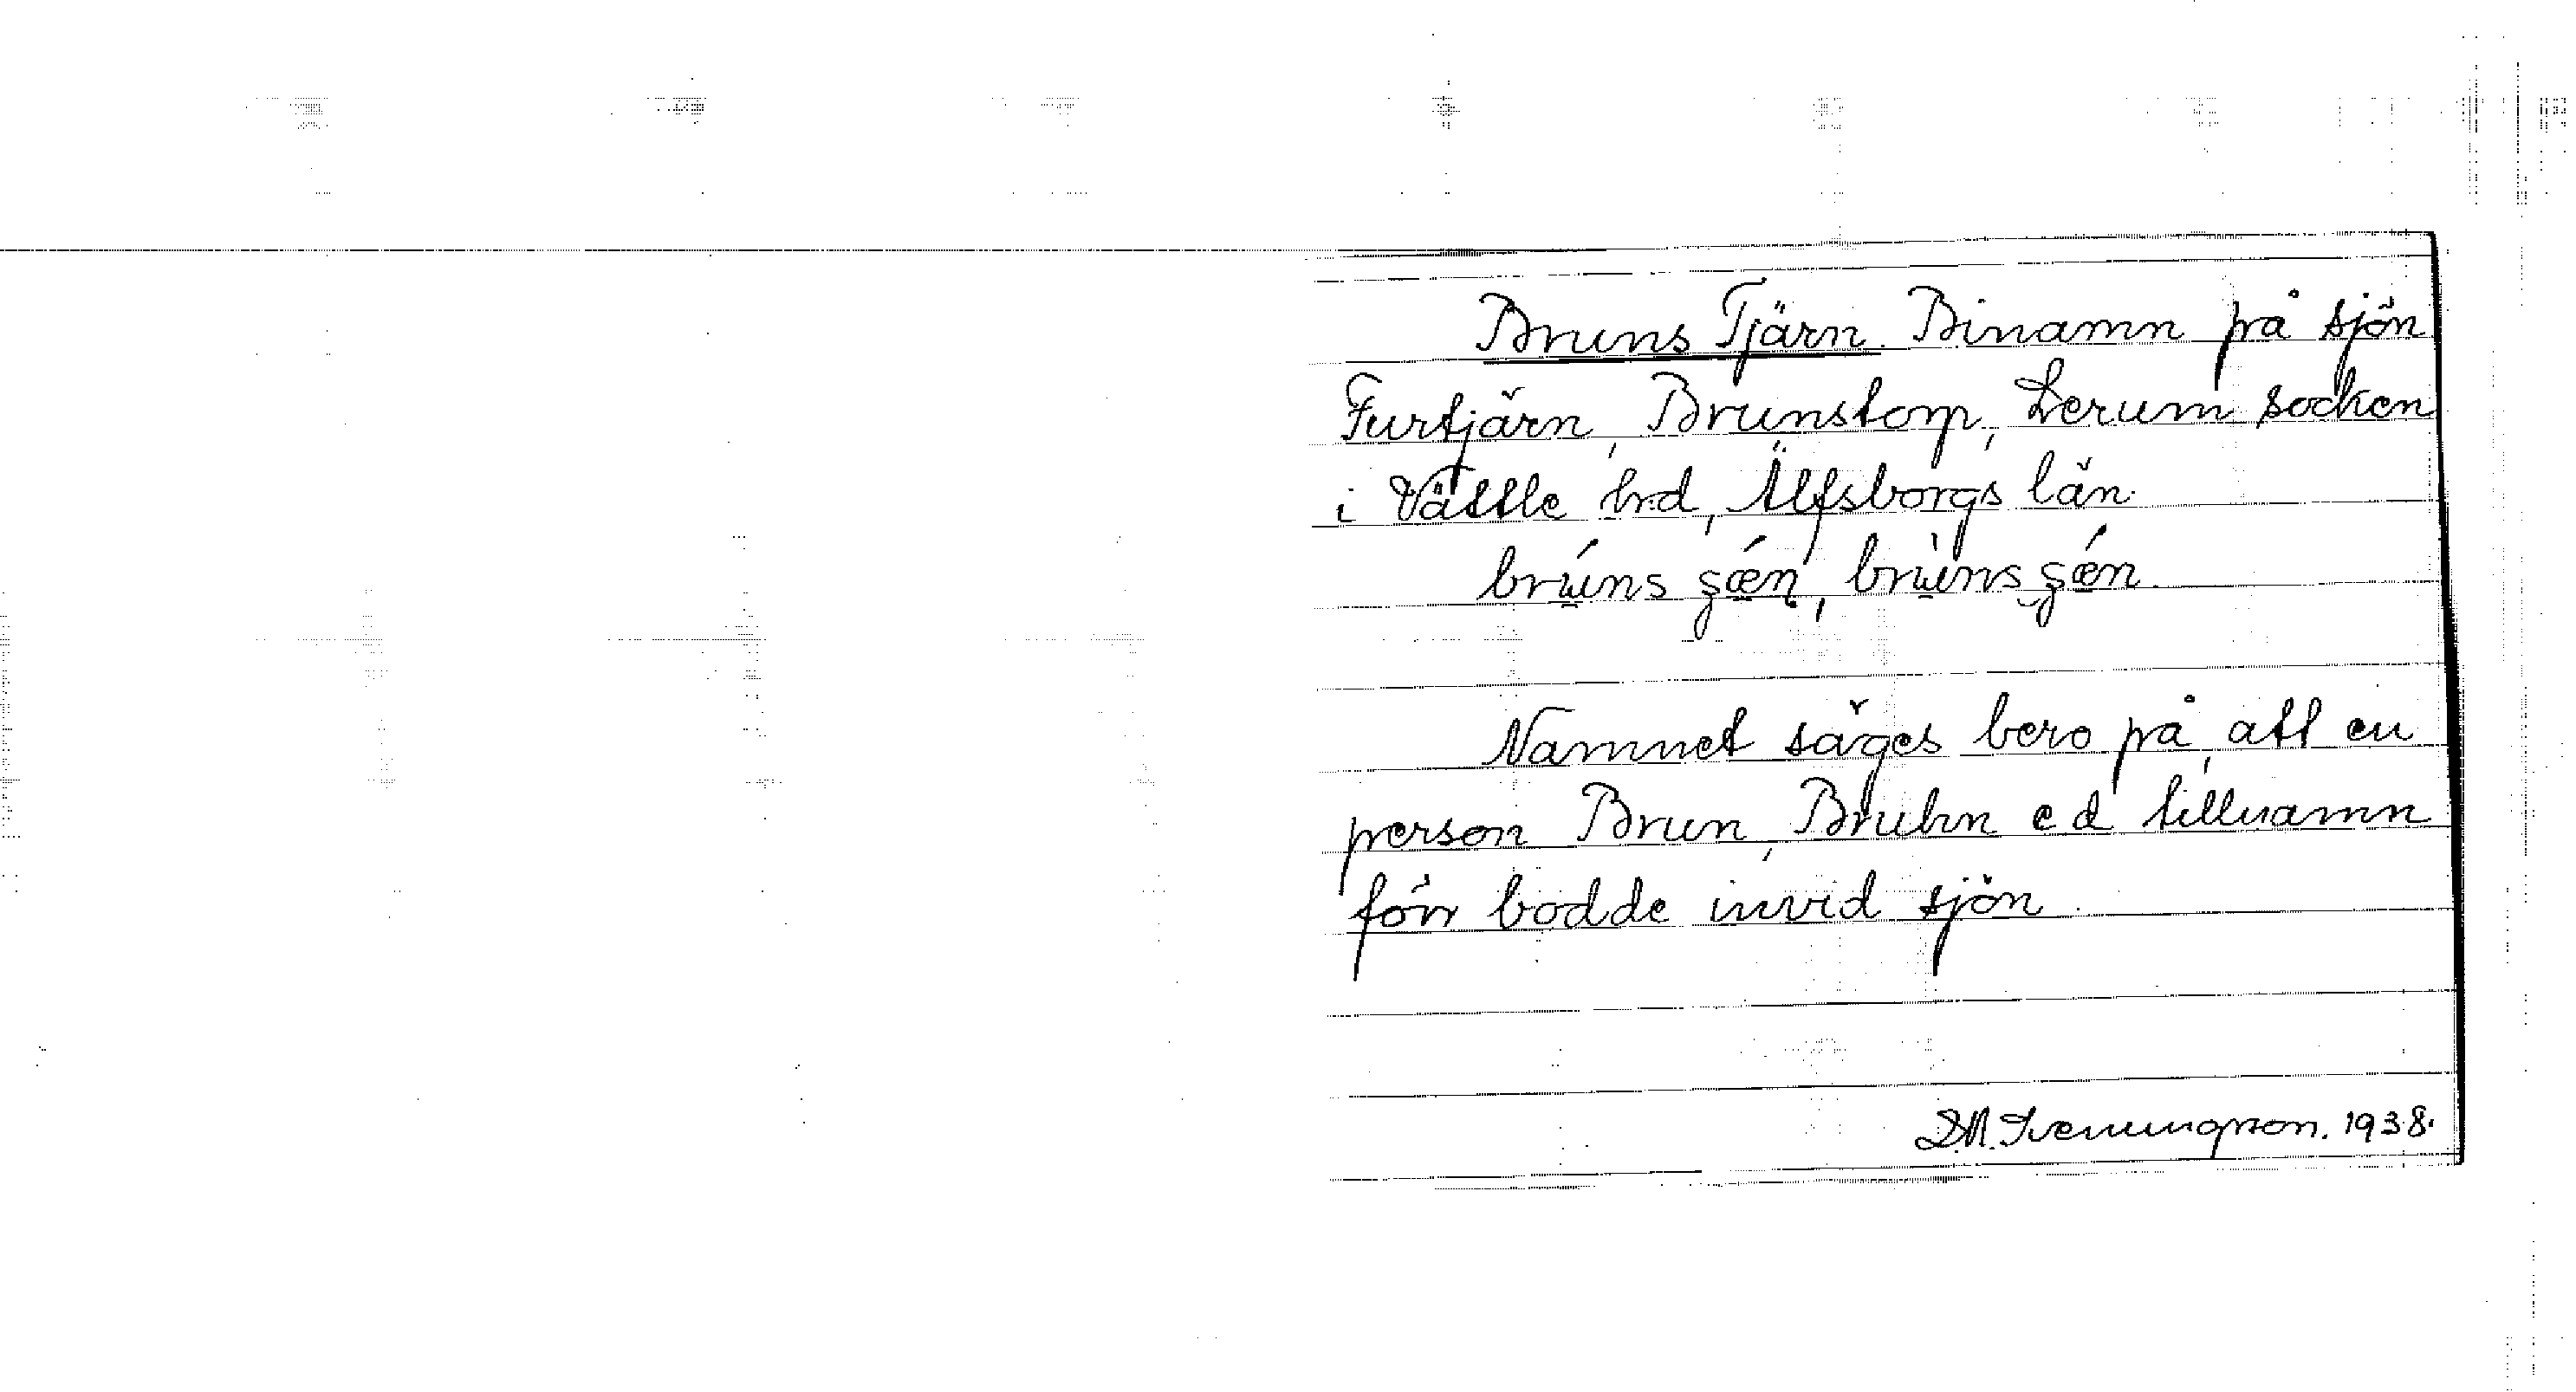 Bruns Tjärn. Binamn på sjön
Furtjärn, Brunstorp, Lerum socken
i Vättle hrd, Älfsborgs län.
Namnet säges bero på, att en
person Brun, Bruhn e d tillnamn
förr bodde invid sjön.
1938.